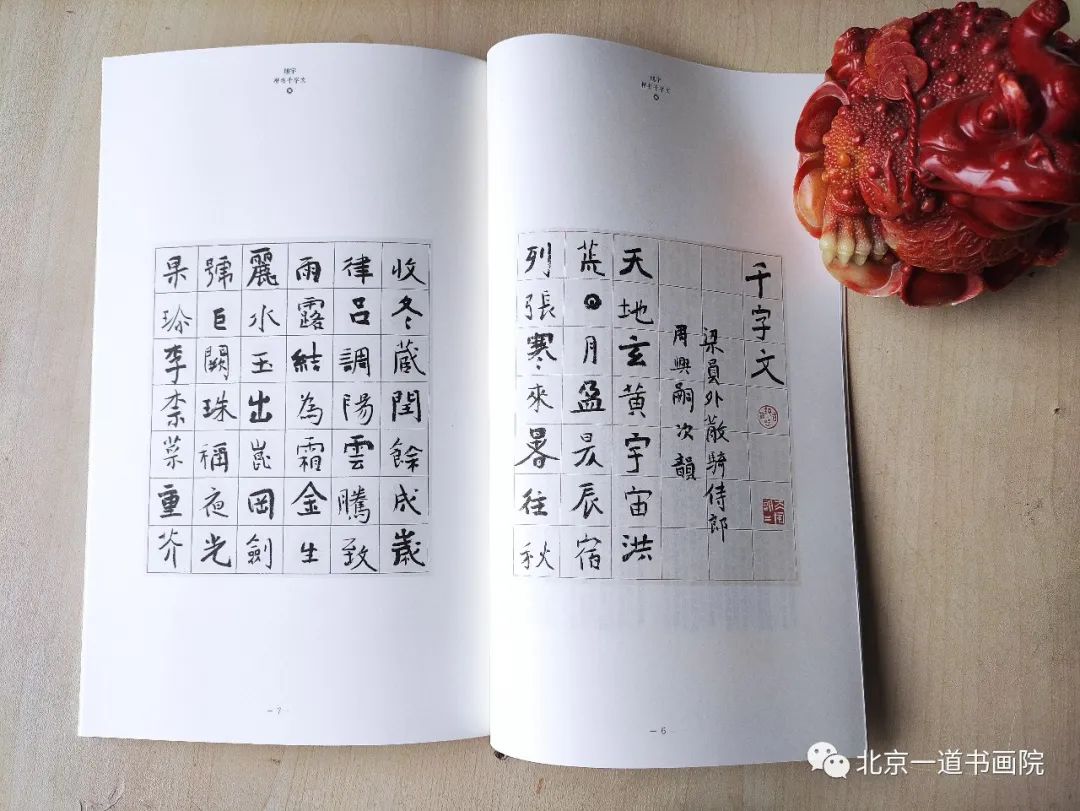 千字文
梁員外散騎侍郎
周興嗣次韻
天地玄黄宇宙洪
荒日月盈昃辰宿
列張寒來暑往秋
6
收冬藏閏餘成歲
律吕調陽雲騰致
雨露結為霜金生
麗水玉出崑岡劍
號巨闕珠稱夜光
果珍李柰菜重芥
7
北京一道书画院